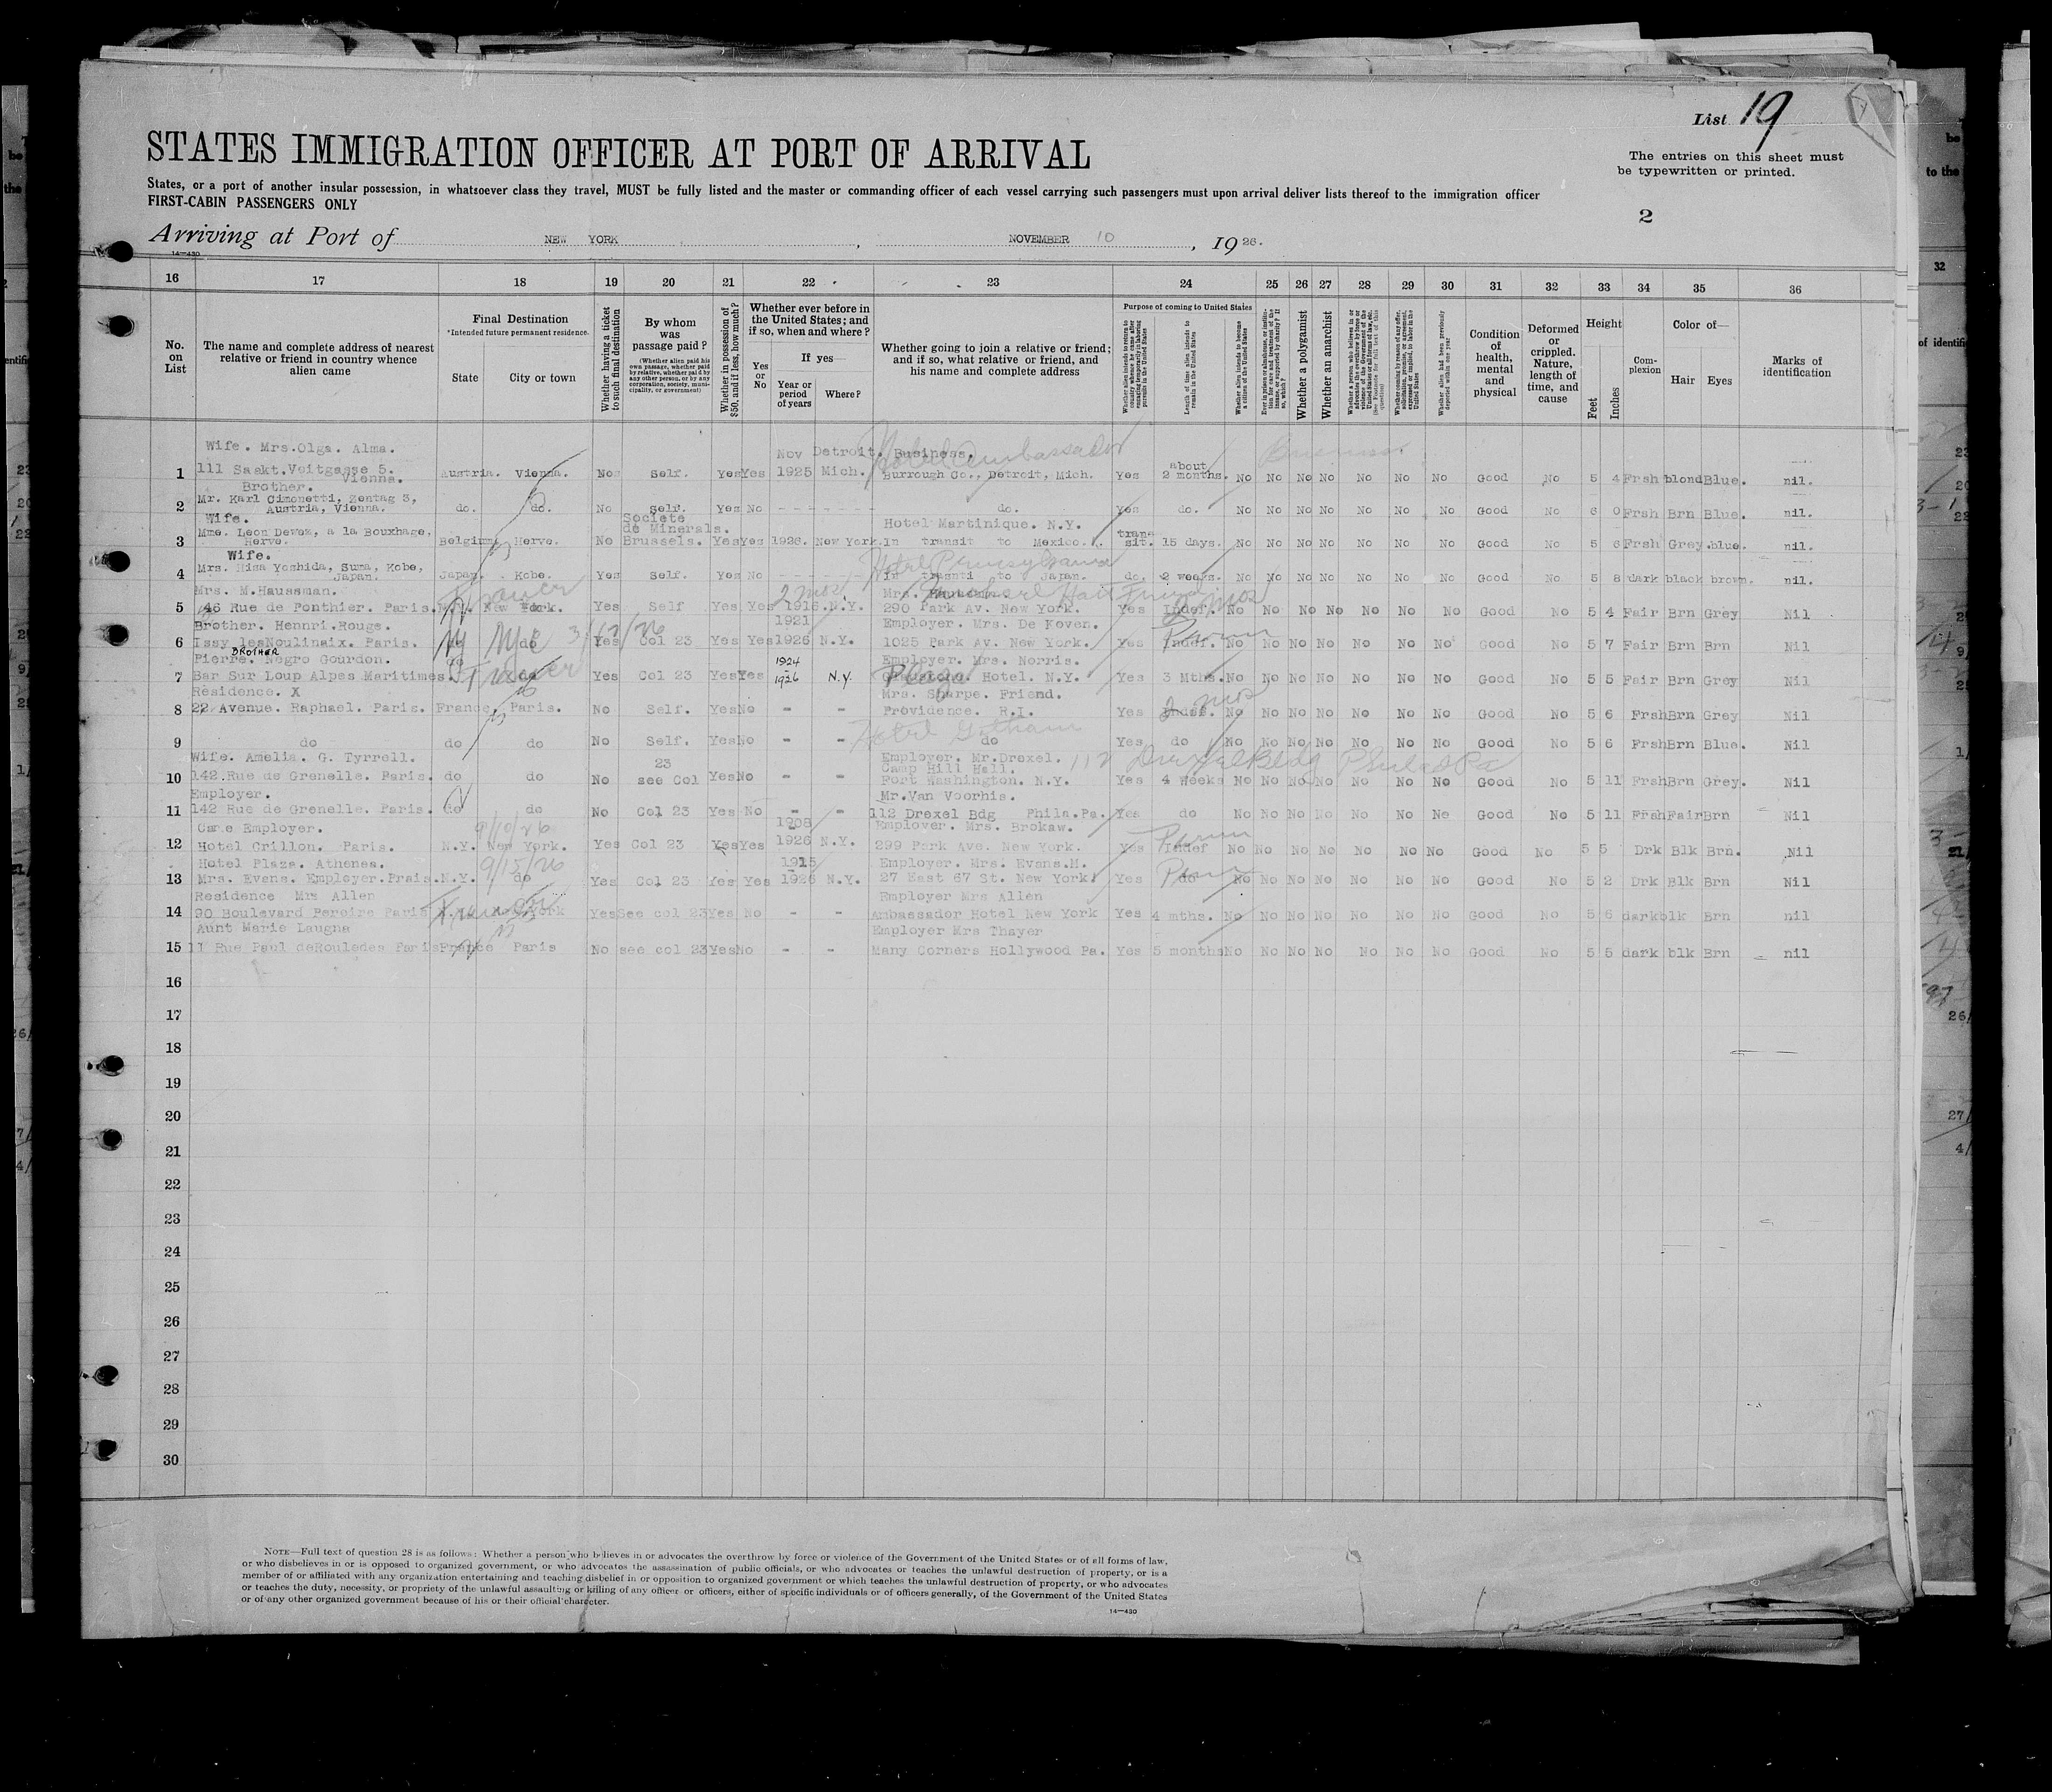 List 19
STATES IMMIGRATION OFFICER AT PORT OF ARRIVAL
The entries on this sheet must
be typewritten or printed.
States, or a port of another insular possession, in whatsoever class they travel, MUST be fully listed and the master or commanding officer of each vessel carrying such passengers must upon arrival deliver lists thereof to the immigration officer
FIRST-CABIN PASSENGERS ONLY
2
Arriving at Port of NEW YORK, NOVEMBER 10, 1926.
14—430
16 17 18 19 20 21 22 23 24 25 26 27 28 29 30 31 32 33 34 35 36
No. on List
The name and complete address of nearest relative or friend in country whence alien came
Final Destination
*Intended future permanent residence.
State City or town
Whether having a ticket to such final destination
By whom was passage paid?
(Whether alien paid his own passage, whether paid by relative, whether paid by any other person, or by any corporation, society, municipality, or government)
Whether in possession of $50, and if less, how much?
Whether ever before in the United States; and if so, when and where?
Yes or No
If yes—
Year or period of years Where?
Whether going to join a relative or friend; and if so, what relative or friend, and his name and complete address
Purpose of coming to United States
Length of time alien intends to remain in the United States
Whether alien intends to become a citizen of the United States
Whether a polygamist
Whether an anarchist
Whether alien had been previously deported within one year
Condition of health, mental and physical
Deformed or crippled. Nature, length of time, and cause
Height
Feet Inches
Complexion
Color of—
Hair Eyes
Marks of identification
Wife. Mrs.Olga. Alma. Nov Detroit. Business. Hotel Ambassador Business
1 111 Saakt.Voitgasse 5. Vienna. Austria. Vienna. No Self. Yes Yes 1925 Mich. Burrough Co., Detroit, Mich. Yes about 2 months. No No No No No No No Good No 5 4 Frsh blond Blue. nil.
Brother.
2 Mr. Karl Cimonetti, Zentag 3, Austria, Vienna. do. do. No Self. Yes No - - - - - - do. Yes do. No No No No No No No Good No 6 0 Frsh Brn Blue. nil.
Wife. Societe de Minerals. Hotel Martinique. N.Y.
3 Mme. Leon Devem, a la Bouxhage, Herve. Belgium Herve. No Brussels. Yes Yes 1926. New York. In transit to Mexico. transit. 15 days. No No No No No No No Good No 5 6 Frsh Grey. blue. nil.
Wife. Hotel Pennsylvania
4 Mrs. Hisa Yoshida, Suma, Kobe, Japan. Japan. Kobe. Yes Self. Yes No - - - - - In trasnti to Japan. do. 2 weeks. No No No No No No No Good No 5 8 dark black brown. nil.
Mrs. M.Haussman. France 2 mos. Mrs. Friend 2 mos
5 46 Rue de Ponthier. Paris. N.Y. New York. Yes Self Yes Yes 1916. N.Y. 290 Park Av. New York. Yes Indef. No No No No No No No Good No 5 4 Fair Brn Grey Nil
Brother. Hennri.Rouge. 1921 Employer. Mrs. De Koven. Perm
6 Issy lesNoulinaix. Paris. do do Yes Col 23 Yes Yes 1926 N.Y. 1025 Park Av. New York. Yes Indef. No No No No No No No Good No 5 7 Fair Brn Brn Nil
BROTHER
Pierre. Negro Gourdon. do France 1924 Employer. Mrs. Norris.
7 Bar Sur Loup Alpes Maritimes. do Yes Col 23 Yes Yes - 1926 N.Y. Plaza Hotel. N.Y. Yes 3 Mths. No No No No No No No Good No 5 5 Fair Brn Grey Nil
Residence. X Mrs. Sharpe. Friend. 2 mos
8 22 Avenue. Raphael. Paris. France. Paris. No Self. Yes No - - Providence. R.I. Yes Indef. No No No No No No No Good No 5 6 Frsh Brn Grey Nil
Hotel Gotham
9 do do do No Self. Yes No - - do Yes do No No No No No No No Good No 5 6 Frsh Brn Blue. Nil
Wife. Amelia. G. Tyrrell. 23 Employer. Mr.Drexel. Camp Hill Hall. 112 Drexel Bldg Philad Pa
10 142.Rue de Grenelle. Paris. do do No see Col Yes No - - Fort Washington. N.Y. Yes 4 Weeks No No No No No No No Good No 5 11 Frsh Brn Grey. Nil
Employer. Mr.Van Voorhis.
11 142 Rue de Grenelle. Paris. do do No Col 23 Yes No - - 112 Drexel Bdg Phila.Pa. Yes do No No No No No No No Good No 5 11 Frsh Fair Brn Nil
Care Employer. 9/10/26 1908 Employer. Mrs. Brokaw. Perm
12 Hotel Crillon. Paris. N.Y. New York. Yes Col 23 Yes Yes 1926 N.Y. 299 Park Ave. New York. Yes Indef No No No No No No No Good No 5 5 Drk Blk Brn. Nil
Hotel Plaza. Athenea. 9/15/26 1915 Employer. Mrs. Evans.M. Perm
13 Mrs. Evens. Employer.Prais. N.Y. do Yes Col 23 Yes Yes 1926 N.Y. 27 East 67 St. New York. Yes do No No No No No No No Good No 5 2 Drk Blk Brn Nil
Residence Mrs Allen France Employer Mrs Allen
14 90 Boulevard Pereire Paris Yes See col 23 Yes No - - Ambassador Hotel New York Yes 4 mths. No No No No No No No Good No 5 6 dark blk Brn nil
Aunt Marie Laugna Employer Mrs Thayer
15 11 Rue Paul deRoulades Paris France Paris No see col 23 Yes No - - Many Corners Hollywood Pa. Yes 5 months No No No No No No No Good No 5 5 dark blk Brn nil
16
17
18
19
20
21
22
23
24
25
26
27
28
29
30
NOTE—Full text of question 28 is as follows: Whether a person who believes in or advocates the overthrow by force or violence of the Government of the United States or of all forms of law,
or who disbelieves in or is opposed to organized government, or who advocates the assassination of public officials, or who advocates or teaches the unlawful destruction of property, or is a
member of or affiliated with any organization entertaining and teaching disbelief in or opposition to organized government or which teaches the unlawful destruction of property, or who advocates
or teaches the duty, necessity, or propriety of the unlawful assaulting or killing of any officer or officers, either of specific individuals or of officers generally, of the Government of the United States
or of any other organized government because of his or their official character.
14—430